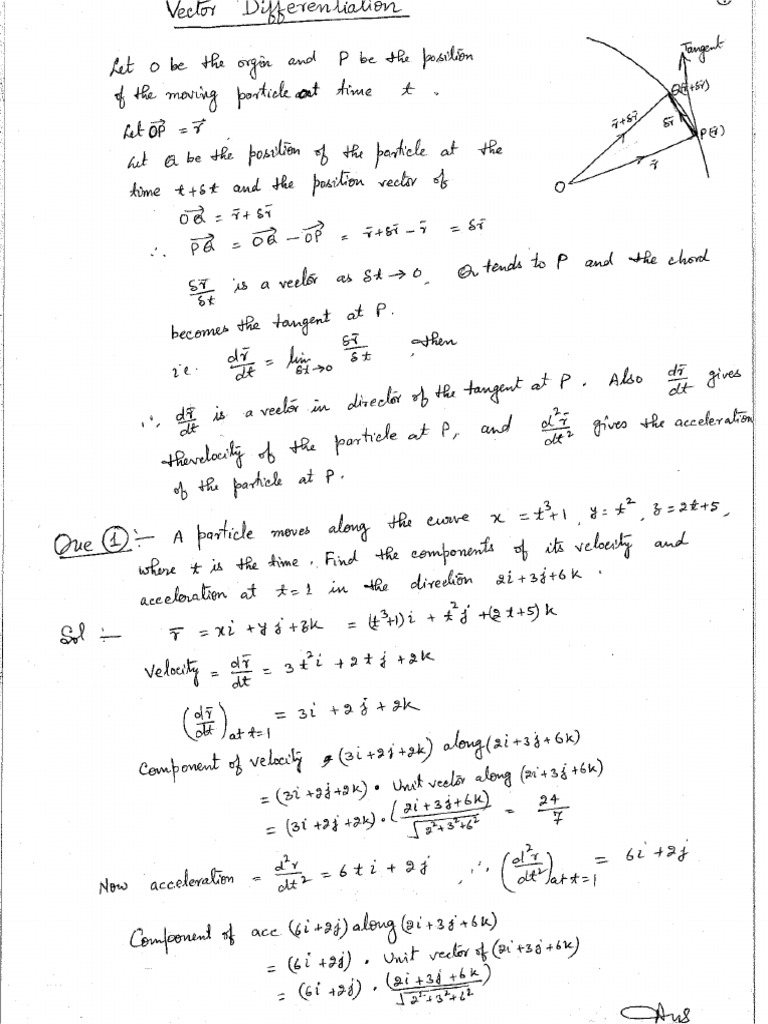 Vector Differentiation
Let O be the orgin and P be the position
of the moving particle at time t.
Let OP⃗ = r⃗
Let Q be the position of the particle at the
time t+δt and the position vector of
OQ⃗ = r̄+δr̄
∴ PQ⃗ = OQ⃗ − OP⃗ = r̄+δr̄−r̄ = δr̄
Tangent
Q(r̄+δr̄)
r̄+δr̄
δr̄
P(r̄)
r̄
O
δr̄/δt is a vector as δt→0, Q tends to P and the chord
becomes the tangent at P.
i.e. dr̄/dt = lim δt→0 δr̄/δt, then
∴ dr̄/dt is a vector in director of the tangent at P. Also dr̄/dt gives
thevelocity of the particle at P, and d²r̄/dt² gives the acceleration
of the particle at P.
Que ① :- A particle moves along the curve x = t³+1, y = t², z = 2t+5,
where t is the time. Find the components of its velocity and
acceleration at t=1 in the direction 2i+3j+6k.
Sol :- r̄ = xi + yj + zk = (t³+1)i + t²j + (2t+5)k
Velocity = dr̄/dt = 3t²i + 2tj + 2k
(dr̄/dt) at t=1 = 3i + 2j + 2k
Component of velocity (3i+2j+2k) along (2i+3j+6k)
= (3i+2j+2k) • Unit vector along (2i+3j+6k)
= (3i+2j+2k) • (2i+3j+6k)/√2²+3²+6² = 24/7
Now acceleration = d²r/dt² = 6ti + 2j, ∴ (d²r/dt²) at t=1 = 6i+2j
Component of acc (6i+2j) along (2i+3j+6k)
= (6i+2j) • Unit vector of (2i+3j+6k)
= (6i+2j) • (2i+3j+6k)/√2²+3²+6²
Ans